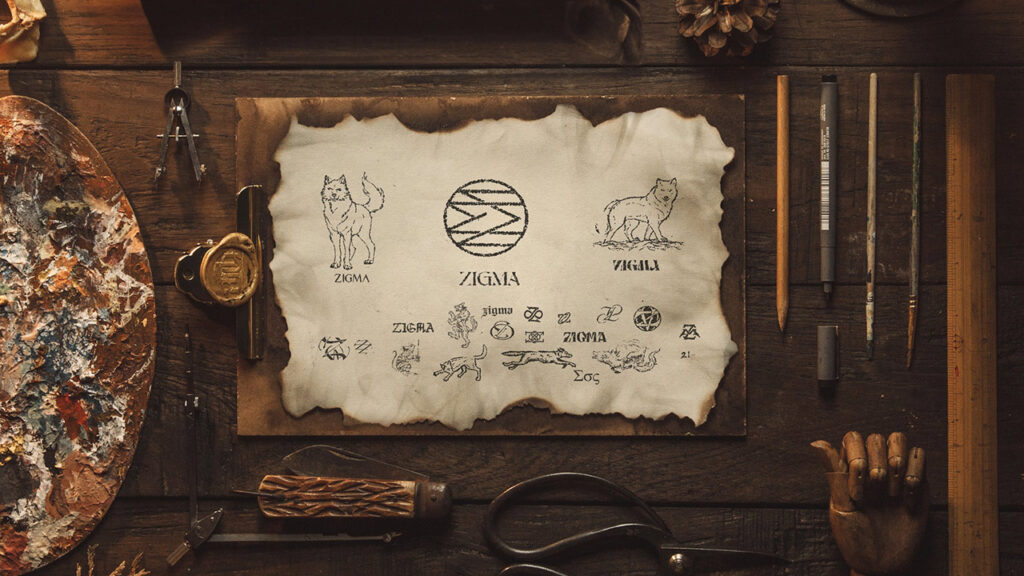 ZIGMA
ZIGMA
ZIGMA
zigma
ZIGMA
ZIGMA
Σσς